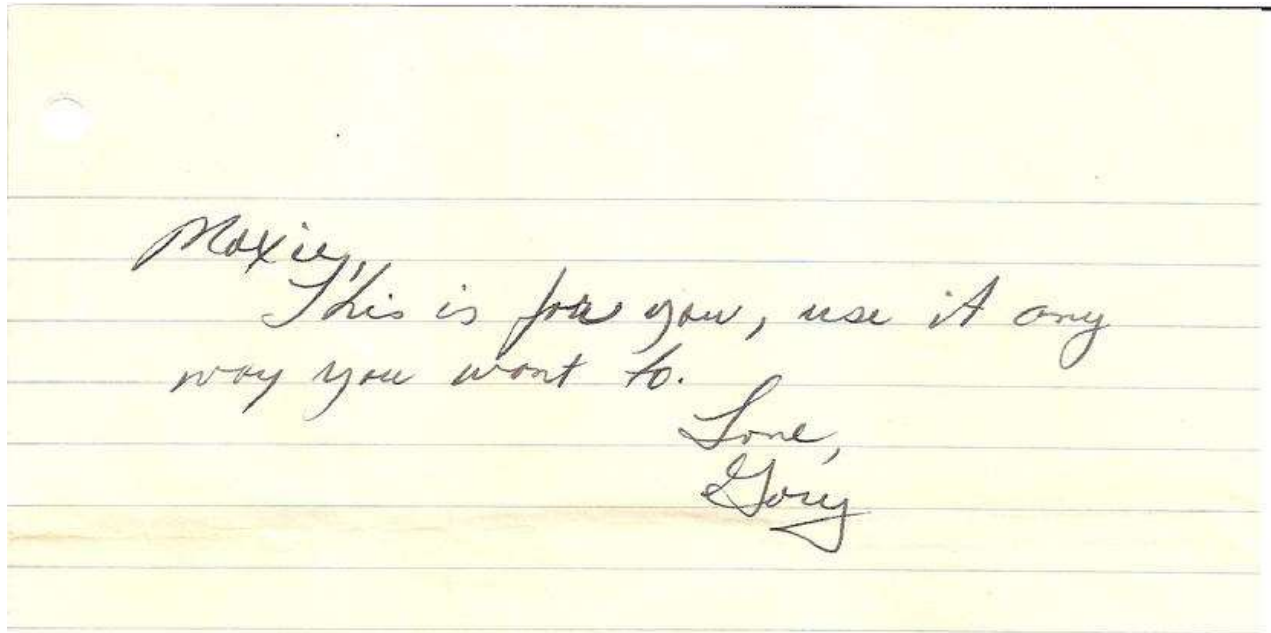 Moxie,
This is for you, use it any
way you want to.
Love,
Gary